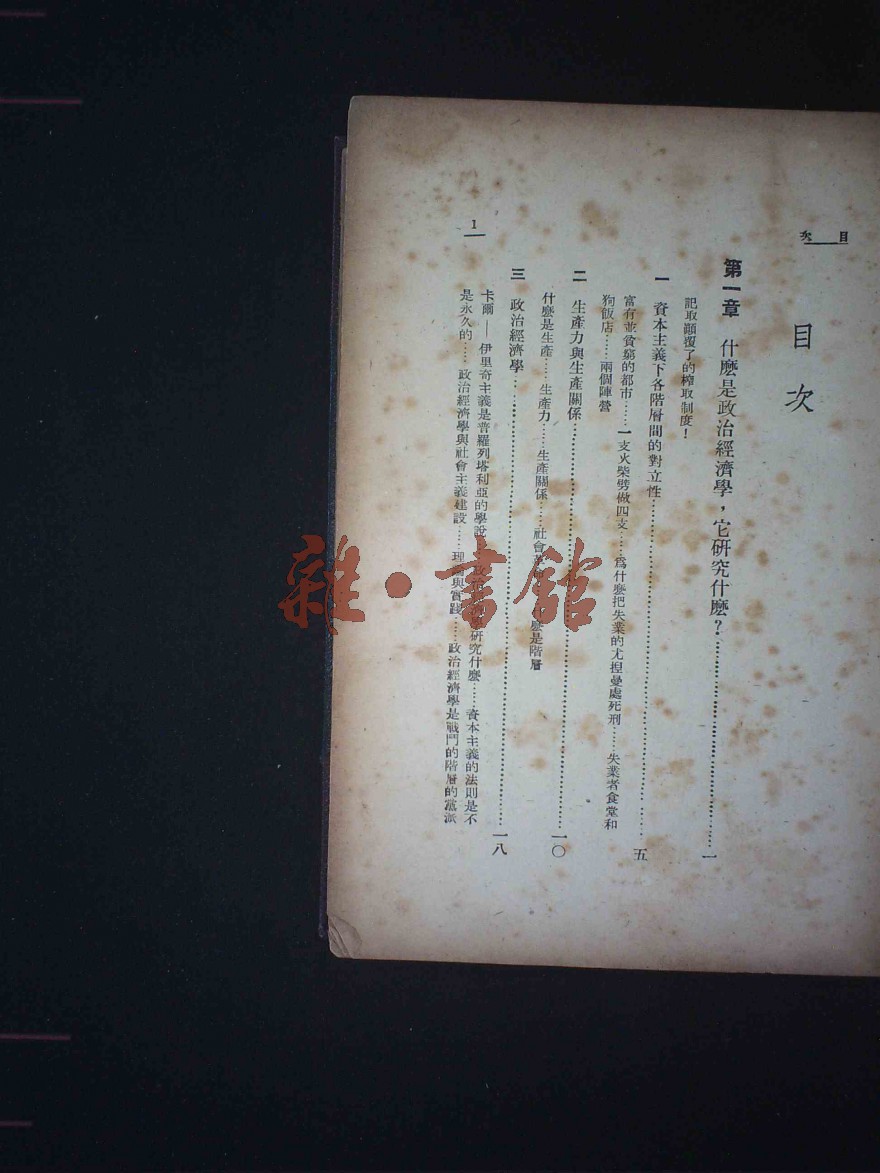 目次
目次
第一章 什麽是政治經濟學，它研究什麽？……一
記取顚覆了的榨取制度！
一 資本主義下各階層間的對立性……五
富有並貧窮的都市……一支火柴劈做四支……爲什麽把失業的尤捏曼處死刑……失業者食堂和
狗飯店……兩個陣營
二 生產力與生產關係……一〇
什麽是生產……生產力……生產關係……社會 麽是階層
三 政治經濟學……一八
卡爾—伊里奇主義是普羅列塔利亞的學說 研究什麽……資本主義的法則是不
是永久的……政治經濟學與社會主義建設……理論與實踐……政治經濟學是戰鬥的階層的黨派
1
雜·書館